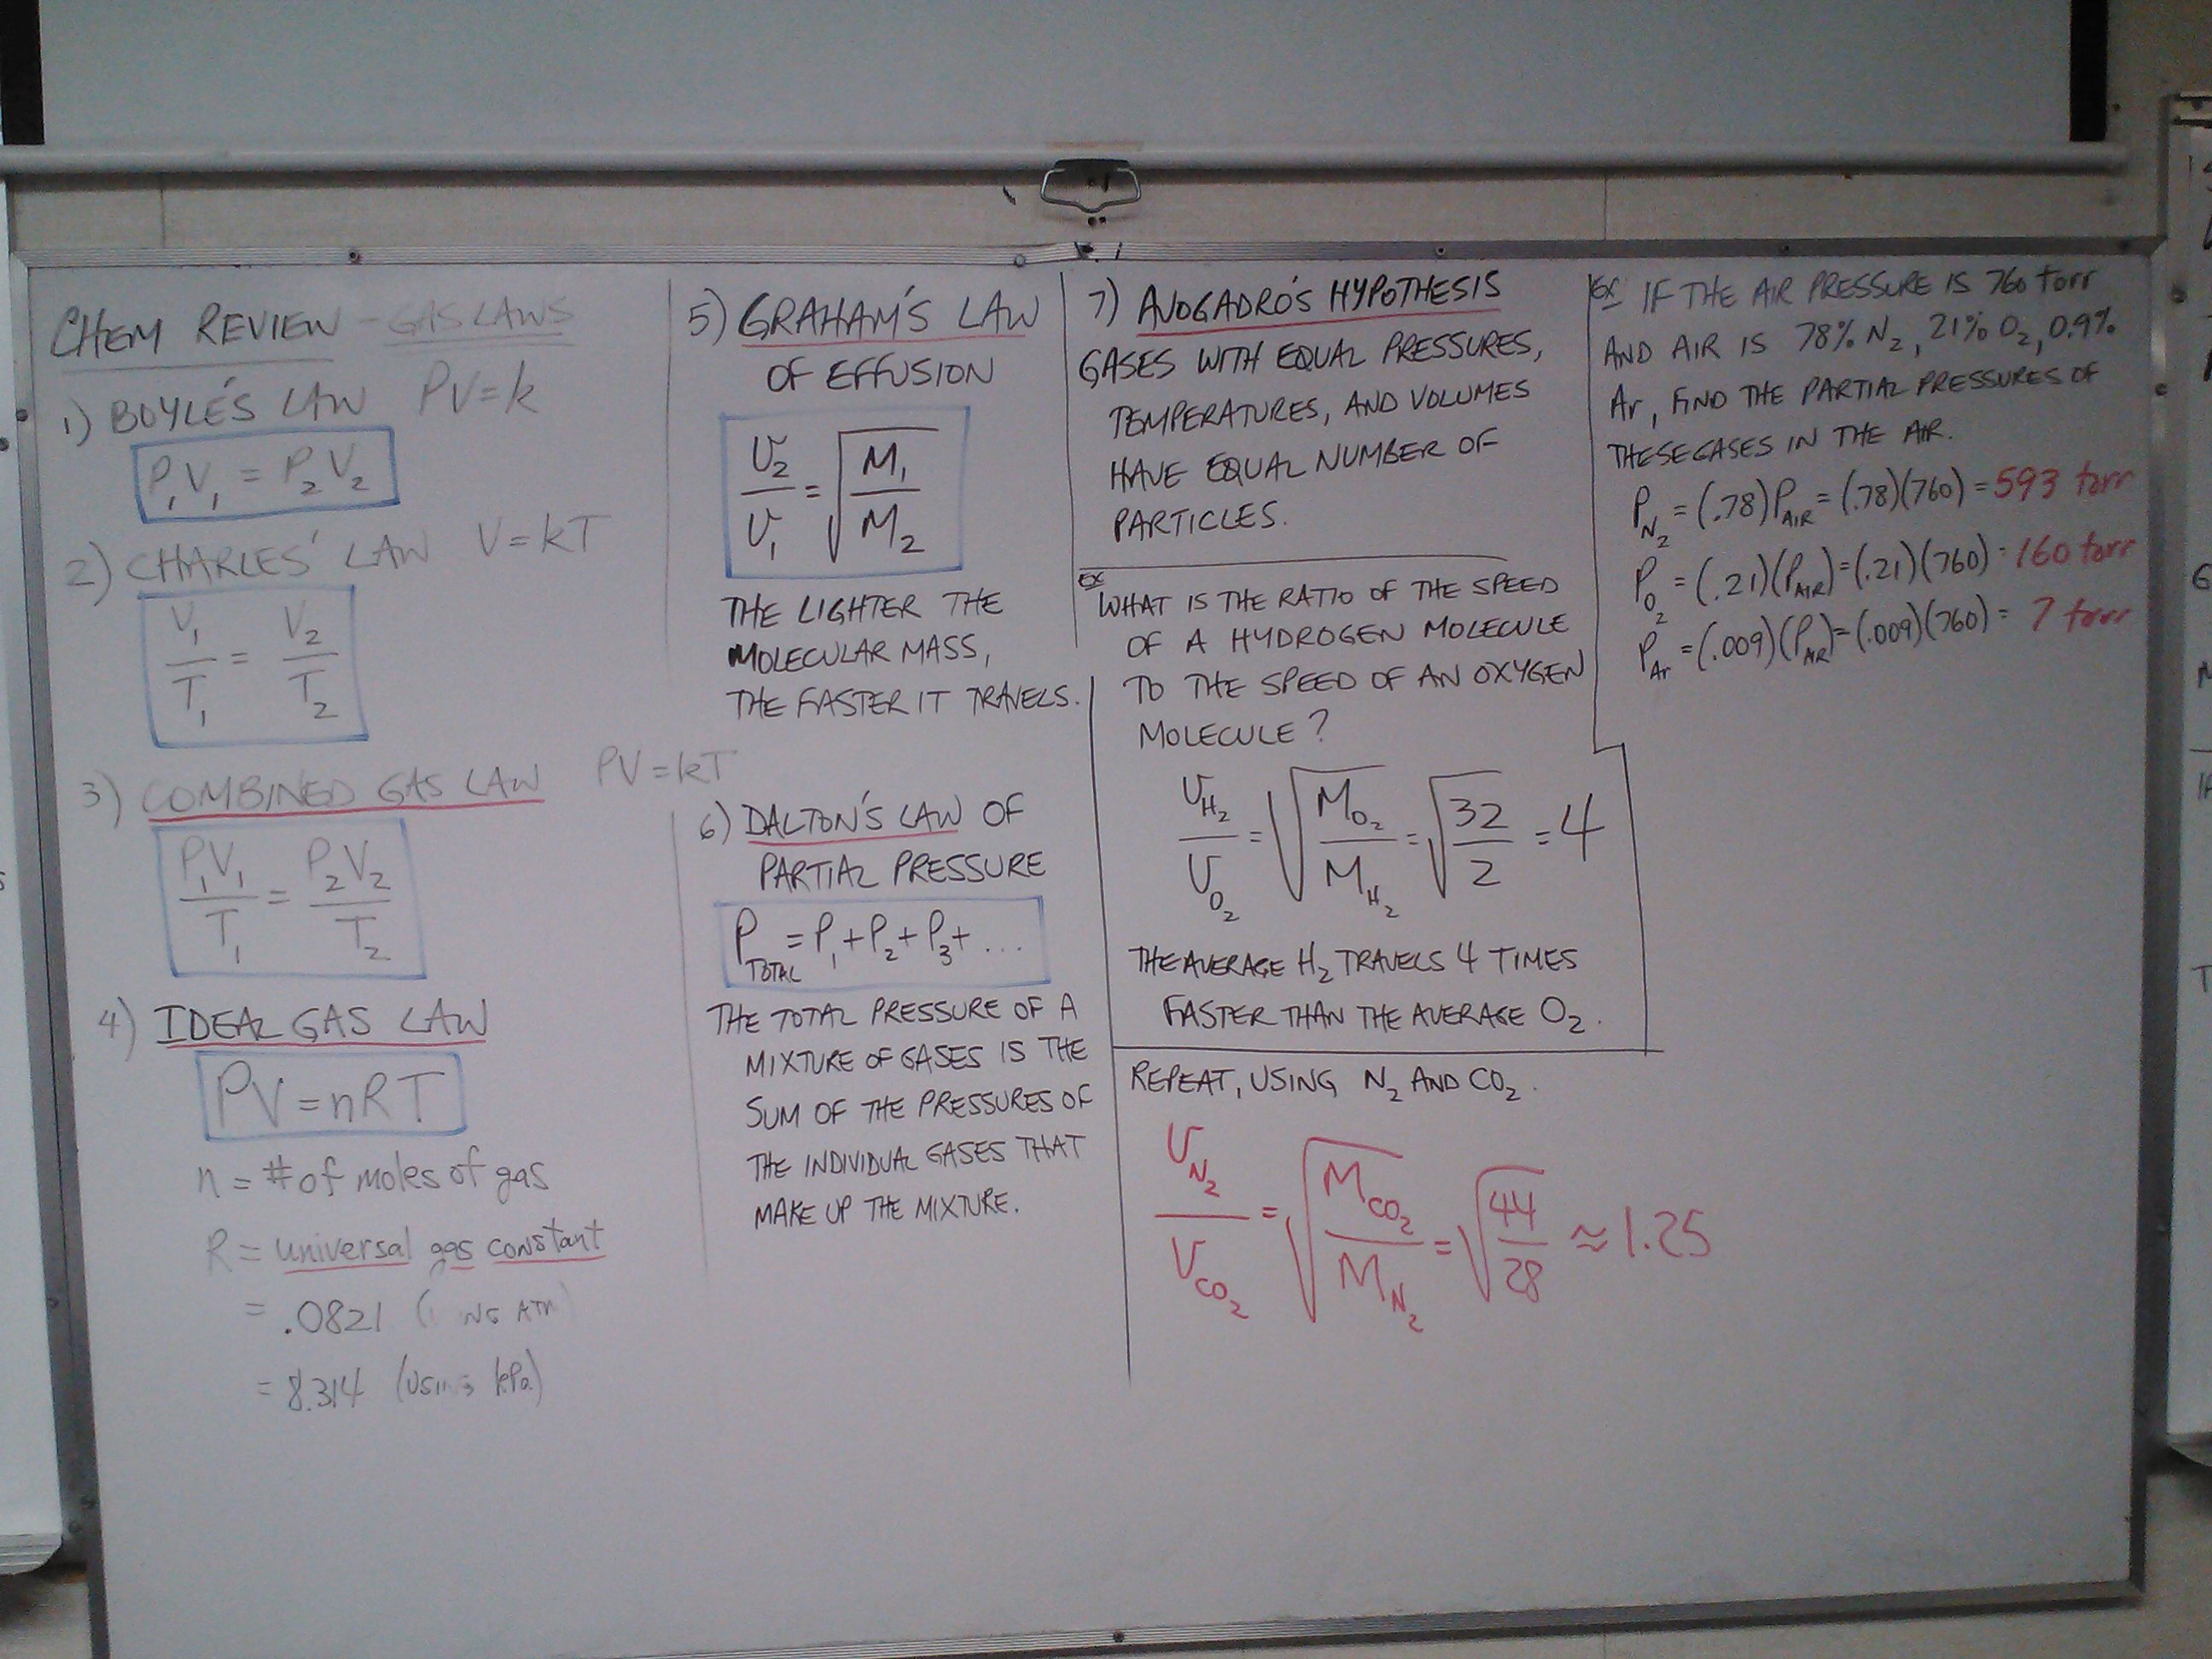 CHEM REVIEW - GAS LAWS
1) BOYLE'S LAW PV=k
P₁V₁ = P₂V₂
2) CHARLES' LAW V=kT
V₁/T₁ = V₂/T₂
3) COMBINED GAS LAW PV=kT
P₁V₁/T₁ = P₂V₂/T₂
4) IDEAL GAS LAW
PV=nRT
n = # of moles of gas
R = universal gas constant
= .0821 ( ATM)
= 8.314 (using kPa)
5) GRAHAM'S LAW
OF EFFUSION
v₂/v₁ = √(M₁/M₂)
THE LIGHTER THE
MOLECULAR MASS,
THE FASTER IT TRAVELS.
6) DALTON'S LAW OF
PARTIAL PRESSURE
P_TOTAL = P₁+P₂+P₃+ ...
THE TOTAL PRESSURE OF A
MIXTURE OF GASES IS THE
SUM OF THE PRESSURES OF
THE INDIVIDUAL GASES THAT
MAKE UP THE MIXTURE.
7) AVOGADRO'S HYPOTHESIS
GASES WITH EQUAL PRESSURES,
TEMPERATURES, AND VOLUMES
HAVE EQUAL NUMBER OF
PARTICLES.
EX WHAT IS THE RATIO OF THE SPEED
OF A HYDROGEN MOLECULE
TO THE SPEED OF AN OXYGEN
MOLECULE?
v_H₂/v_O₂ = √(M_O₂/M_H₂) = √(32/2) = 4
THE AVERAGE H₂ TRAVELS 4 TIMES
FASTER THAN THE AVERAGE O₂.
REPEAT, USING N₂ AND CO₂.
v_N₂/v_CO₂ = √(M_CO₂/M_N₂) = √(44/28) ≈ 1.25
EX IF THE AIR PRESSURE IS 760 torr
AND AIR IS 78% N₂, 21% O₂, 0.9%
Ar, FIND THE PARTIAL PRESSURES OF
THESE GASES IN THE AIR.
P_N₂ = (.78)P_AIR = (.78)(760) = 593 torr
P_O₂ = (.21)(P_AIR) = (.21)(760) = 160 torr
P_Ar = (.009)(P_AIR) = (.009)(760) = 7 torr